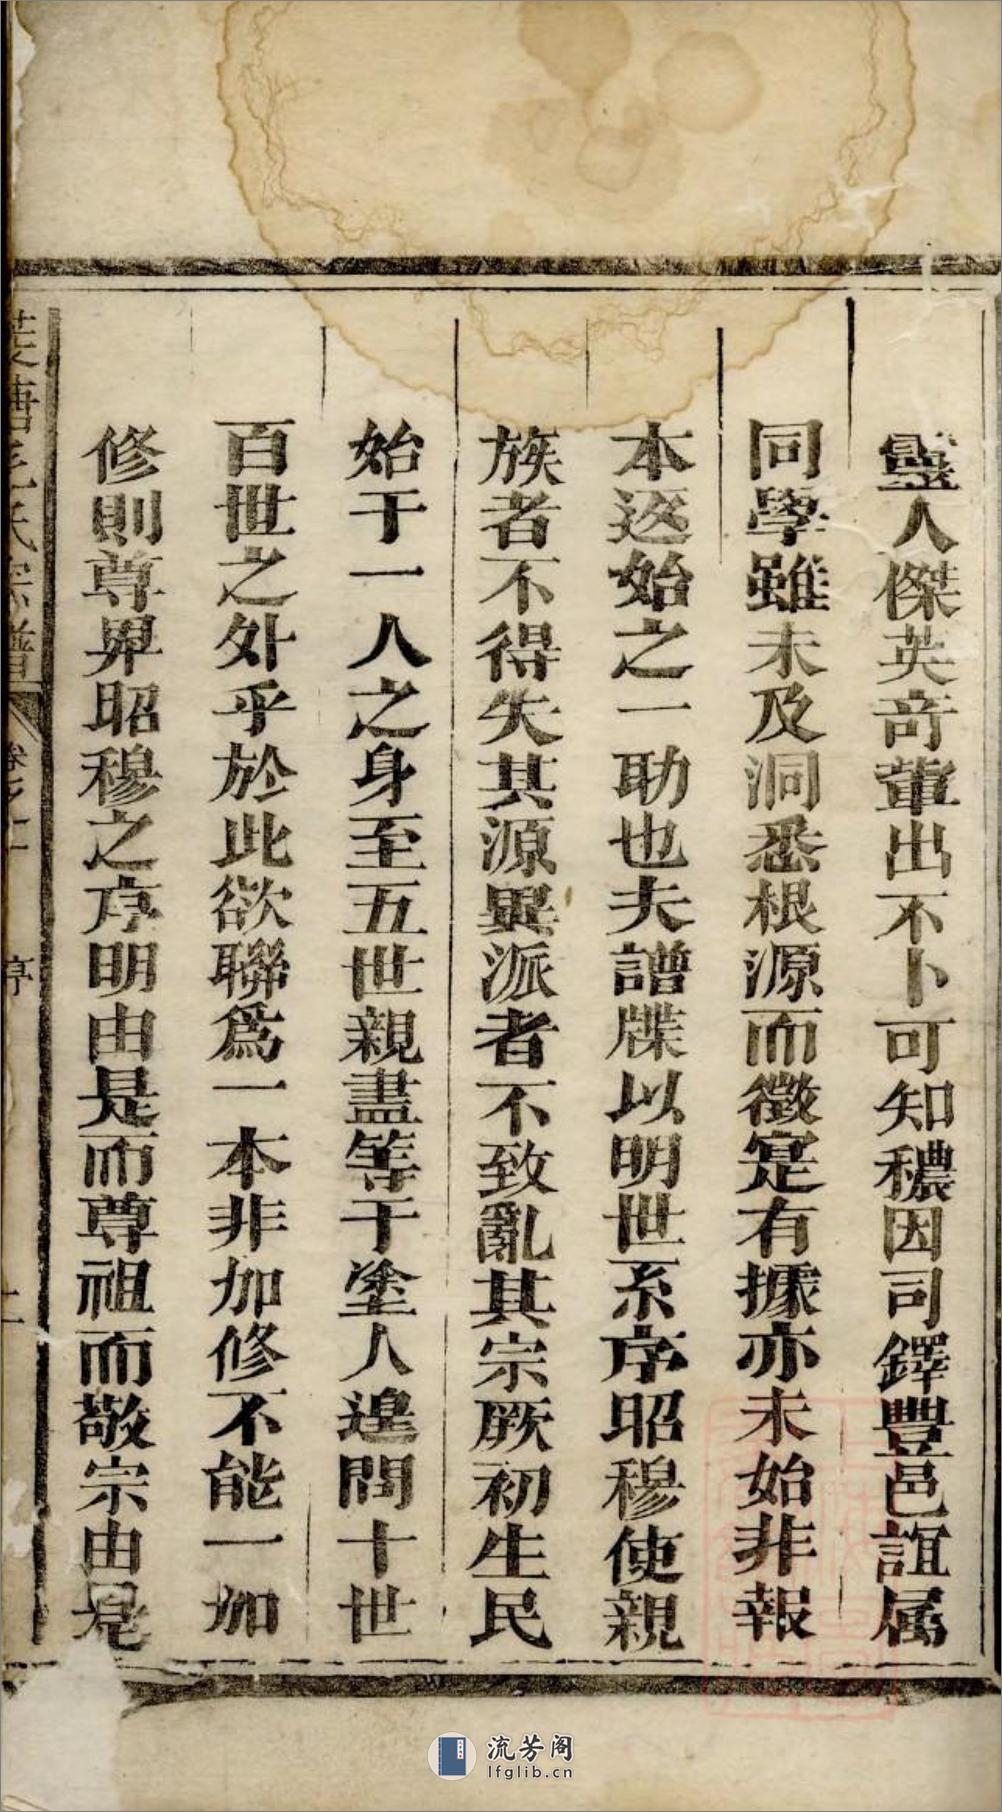 靈人傑英奇輩出不卜可知穠因司鐸豐邑誼属
同學雖未及洞悉根源而徵寔有據亦未始非報
本返始之一助也夫譜牒以明世系序昭穆使親
族者不得失其源異派者不致亂其宗厥初生民
始于一人之身至五世親盡等于塗人遑問十世
百世之外乎於此欲聯爲一本非加修不能一加
修則尊卑昭穆之序明由是而尊祖而敬宗由是
氏宗譜
卷之上
序
流芳阁
lfglib.cn